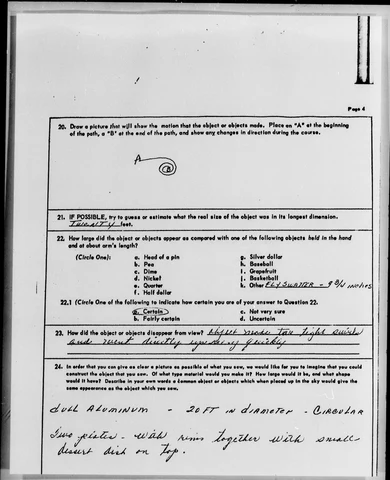 Page 4
20. Draw a picture that will show the motion that the object or objects made. Place an "A" at the beginning
of the path, a "B" at the end of the path, and show any changes in direction during the course.
A
B
21. IF POSSIBLE, try to guess or estimate what the real size of the object was in its longest dimension.
TWENTY feet.
22. How large did the object or objects appear as compared with one of the following objects held in the hand
and at about arm's length?
(Circle One): a. Head of a pin g. Silver dollar
b. Pea h. Baseball
c. Dime i. Grapefruit
d. Nickel j. Basketball
e. Quarter k. Other FLYSWATTER - 9 3/4 INCHES
f. Half dollar
22.1 (Circle One of the following to indicate how certain you are of your answer to Question 22.
a. Certain c. Not very sure
b. Fairly certain d. Uncertain
23. How did the object or objects disappear from view? Object made two tight swirls
and went directly up very quickly
24. In order that you can give as clear a picture as possible of what you saw, we would like for you to imagine that you could
construct the object that you saw. Of what type material would you make it? How large would it be, and what shape
would it have? Describe in your own words a common object or objects which when placed up in the sky would give the
same appearance as the object which you saw.
DULL ALUMINUM - 20 FT IN DIAMETER - CIRCULAR
Two plates - with rims together with small
desert dish on top.